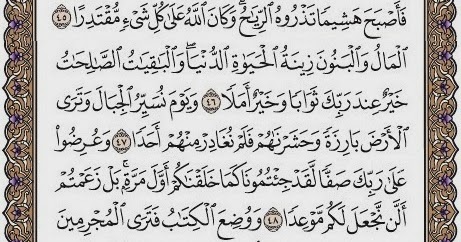 فَأَصْبَحَ هَشِيمًا تَذْرُوهُ ٱلرِّيَٰحُۗ وَكَانَ ٱللَّهُ عَلَىٰ كُلِّ شَىْءٍ مُّقْتَدِرًا ٤٥
ٱلْمَالُ وَٱلْبَنُونَ زِينَةُ ٱلْحَيَوٰةِ ٱلدُّنْيَاۖ وَٱلْبَٰقِيَٰتُ ٱلصَّٰلِحَٰتُ
خَيْرٌ عِندَ رَبِّكَ ثَوَابًا وَخَيْرٌ أَمَلًا ٤٦ وَيَوْمَ نُسَيِّرُ ٱلْجِبَالَ وَتَرَى
ٱلْأَرْضَ بَارِزَةً وَحَشَرْنَٰهُمْ فَلَمْ نُغَادِرْ مِنْهُمْ أَحَدًا ٤٧ وَعُرِضُوا۟
عَلَىٰ رَبِّكَ صَفًّا لَّقَدْ جِئْتُمُونَا كَمَا خَلَقْنَٰكُمْ أَوَّلَ مَرَّةٍۭۚ بَلْ زَعَمْتُمْ
أَلَّن نَّجْعَلَ لَكُم مَّوْعِدًا ٤٨ وَوُضِعَ ٱلْكِتَٰبُ فَتَرَى ٱلْمُجْرِمِينَ